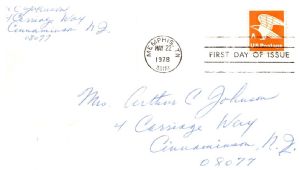 C Johnson
4 Carriage Way
Cinnaminson N.J.
08077
MEMPHIS, TN
MAY 22
1978
FIRST DAY OF ISSUE
A
US Postage
Mrs Arthur C Johnson
4 Carriage Way
Cinnaminson N.J.
08077